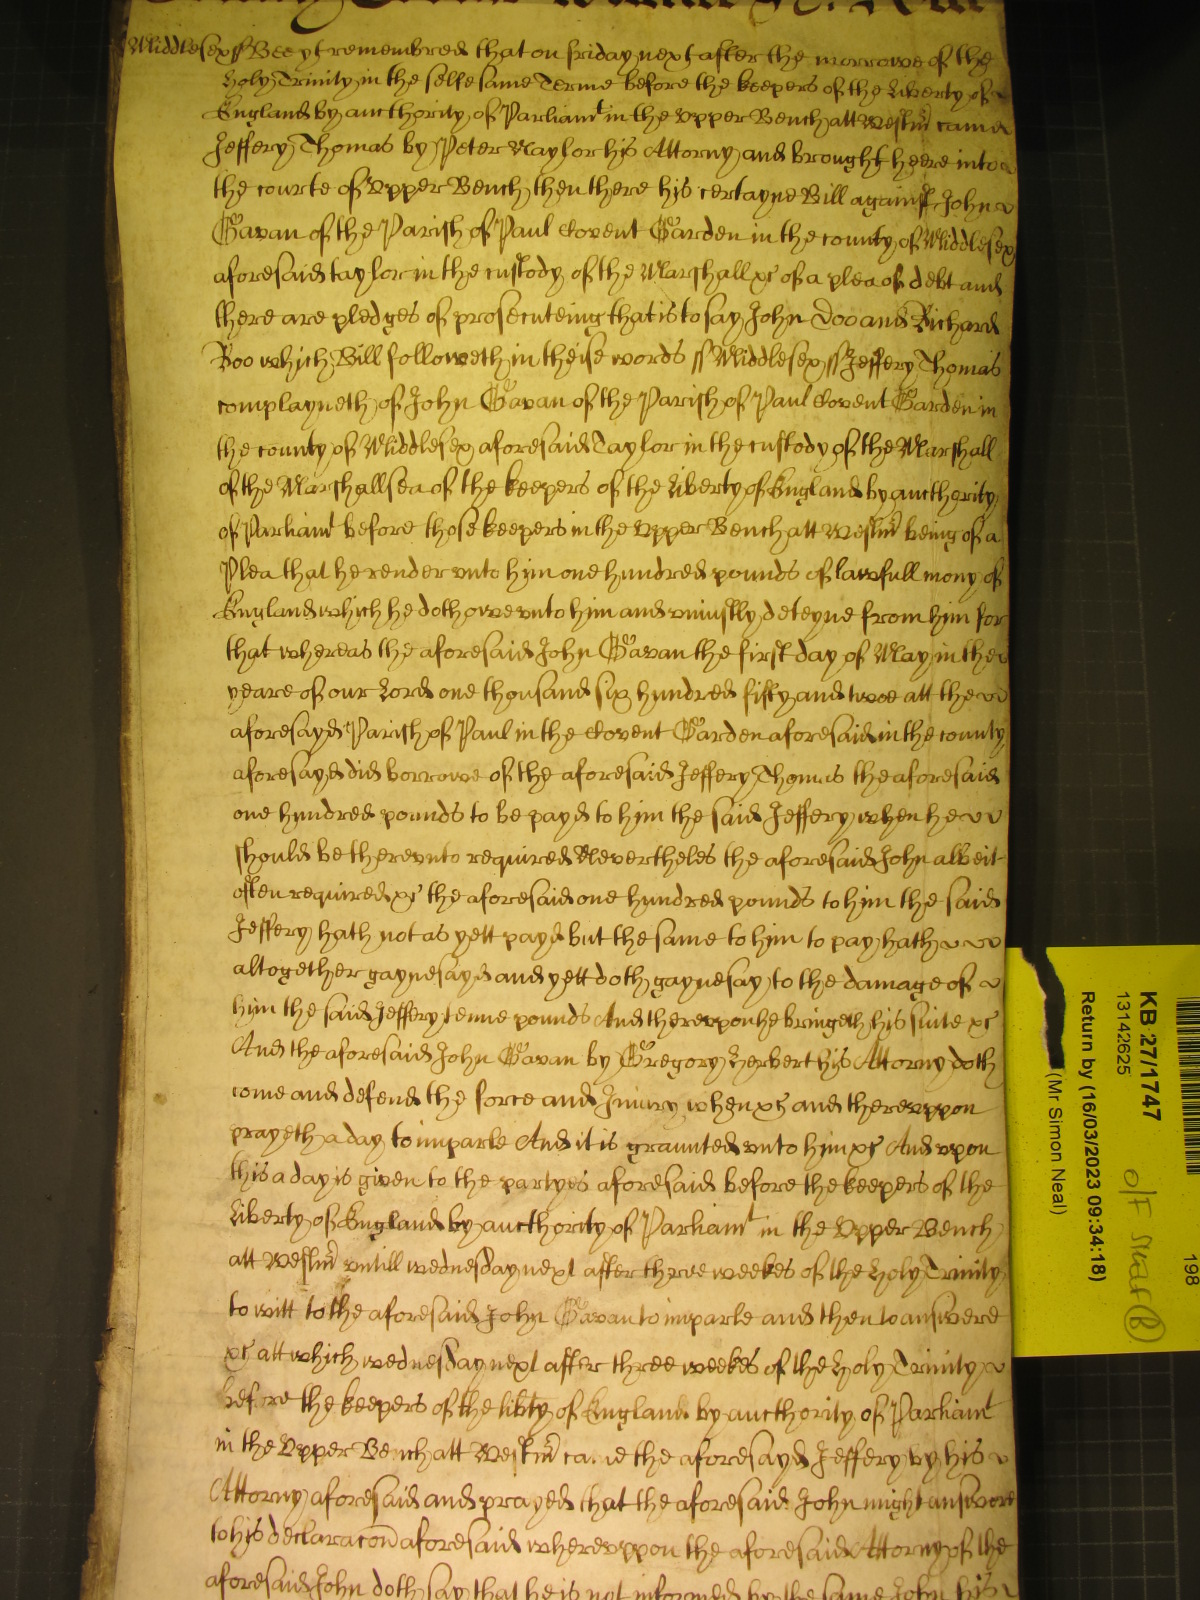 Middlesex ss Bee yt remembred that on friday next after the morrowe of the
Holy Trinity in the selfe same Terme before the keepers of the Liberty of
England by aucthority of Parliamt in the vpper Bench att Westmr came
Jeffery Thomas by Peter Naylor his Attorny and brought heere into
the courte of vpper Bench then there his certayne Bill against John
Gavan of the Parish of Paul Covent Garden in the county of Middlesex
aforesaid taylor in the custody of the Marshall &c of a plea of debt and
there are pledges of prosecuteing that is to say John Doo and Richard
Roo which Bill followeth in theise words ss Middlesex ss Jeffery Thomas
complayneth of John Gavan of the Parish of Paul Covent Garden in
the county of Middlesex aforesaid Taylor in the custody of the Marshall
of the Marshallsea of the keepers of the Liberty of England by aucthority
of Parliamt before those keepers in the vpper Bench att Westmr being of a
Plea that he render vnto him one hundred pounds of lawfull mony of
England which he doth owe vnto him and vniustly deteyne from him for
that whereas the aforesaid John Gavan the first day of May in the
yeare of our Lord one thousand six hundred fifty and twoe att the
aforesayd Parish of Paul in the Covent Garden aforesaid in the county
aforesayd did borrowe of the aforesaid Jeffery Thomas the aforesaid
one hundred pounds to be payd to him the said Jeffery when he
should be therevnto required Nevertheles the aforesaid John albeit
often required &c the aforesaid one hundred pounds to him the said
Jeffery hath not as yett payd but the same to him to pay hath
altogether gaynesayd and yett doth gaynesay to the damage of
him the said Jeffery tenne pounds And therevpon he bringeth his suite &c
And the aforesaid John Gavan by Gregory Herbert his Attorny doth
come and defend the force and Iniury when &c and therevppon
prayeth a day to imparle And it is graunted vnto him &c And vpon
this a day is given to the partyes aforesaid before the keepers of the
Liberty of England by aucthority of Parliamt in the Vpper Bench
att Westmr vntill wednesday next after three weekes of the Holy Trinity
to witt to the aforesaid John Gavan to imparle and then to answere
&c att which wednesday next after three weekes of the Holy Trinity
before the keepers of the libty of England by aucthority of Parliamt
in the Vpper Bench att Westmr came the aforesayd Jeffery by his
Attorny aforesaid and prayed that the aforesaid John might answere
to his declaracon aforesaid wherevppon the aforesaid Attorny of the
aforesaid John doth say that he is not informed by the same John his
KB 27/1747
13142625
Return by (16/03/2023 09:34:18)
(Mr Simon Neal)
198